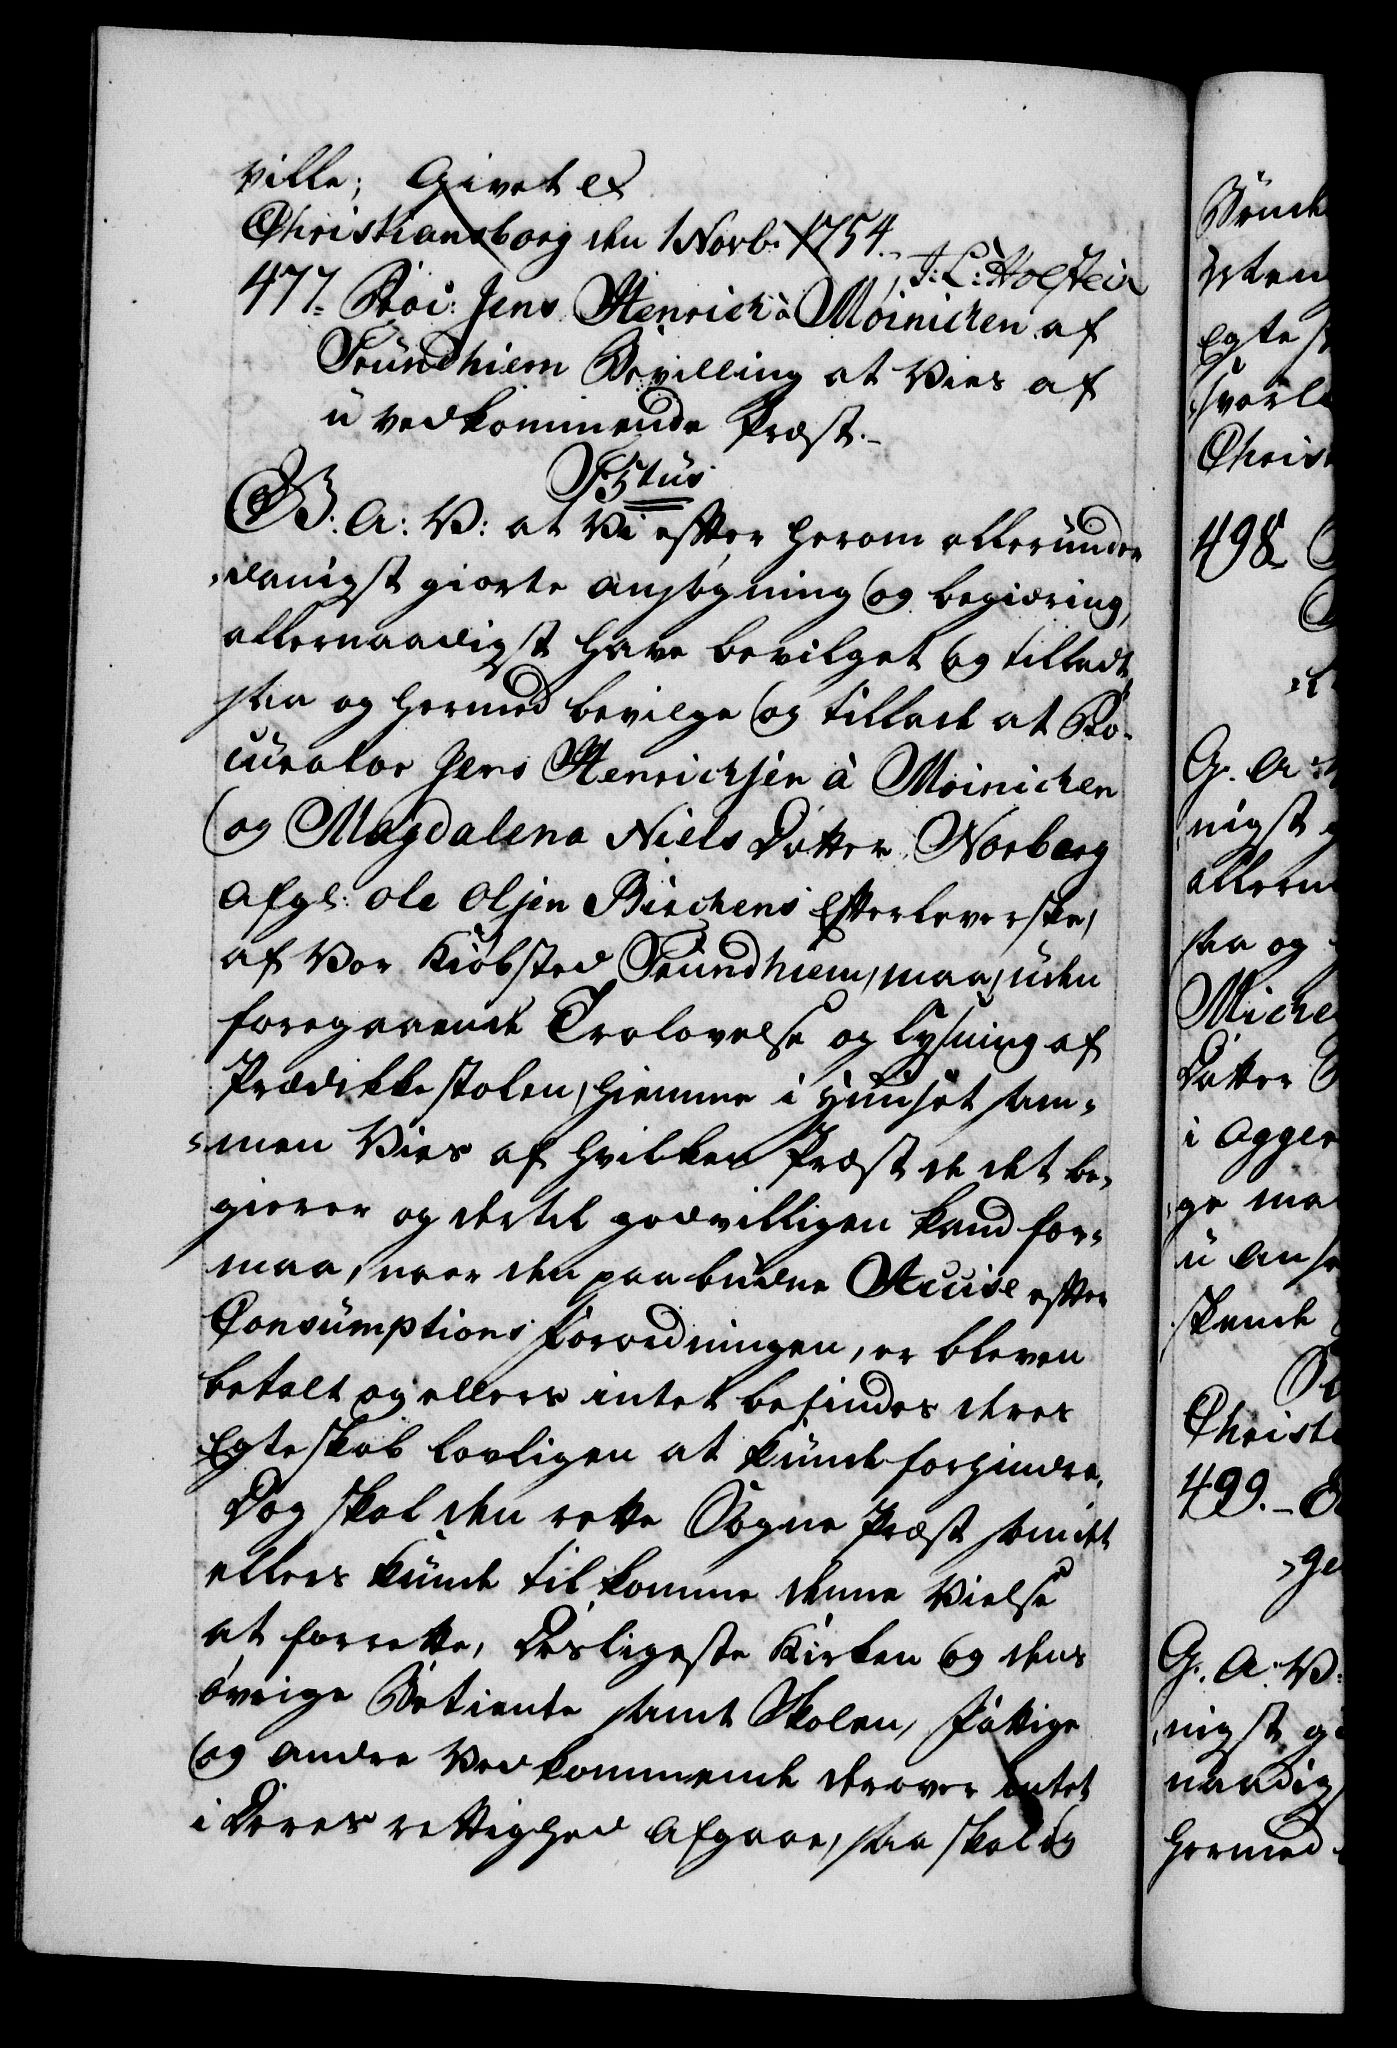 ville; Givet etc
Christiansborg den 1 Novb. 1754.
J: L: Holstein
477. Proc: Jens Henrich à Møinichen af
Trundhiem Bevilling at Vies af
uvedkommende Præst.
F: 5tus
G: A: V: at Vi efter herom allerunder
danigst giorte ansøgning og begiæring,
allernaadigst have bevilget og tilladt,
saa og hermed bevilge og tillade at Pro-
curator Jens Henrichsen à Møinichen
og Magdalena Niels Datter Norberg
Afgl: Ole Olsen Birchens Efterleverske,
af Vor Kiøbsted Trundhiem, maa, uden
foregaaende Trolovelse og Lysning af
Prædikkestolen, hiemme i Huuset sam-
men Vies af hvilken Præst de det be-
gierer og dertil godvilligen kand for-
maa, naar den paabudne Accise efter
Consumptions Forordningen, er bleven
betalt og ellers intet befindes deres
Egteskab lovligen at kunde forhindre.
Dog skal den rette Sogne Præst som det
ellers kunde tilkomme denne Vielse
at forrette, Desligeste Kirken og dens
øvrige Betiente samt Skolen, Fattige
og andre Vedkommende derover intet
i Deres rettighed Afgaae, saa skal og
498
G. A.
nigst
allern
saa og
Miche
Datter
i Agger
ge ma
skende
Christ
499.
G. A. V:
nigst
naadig
hermed